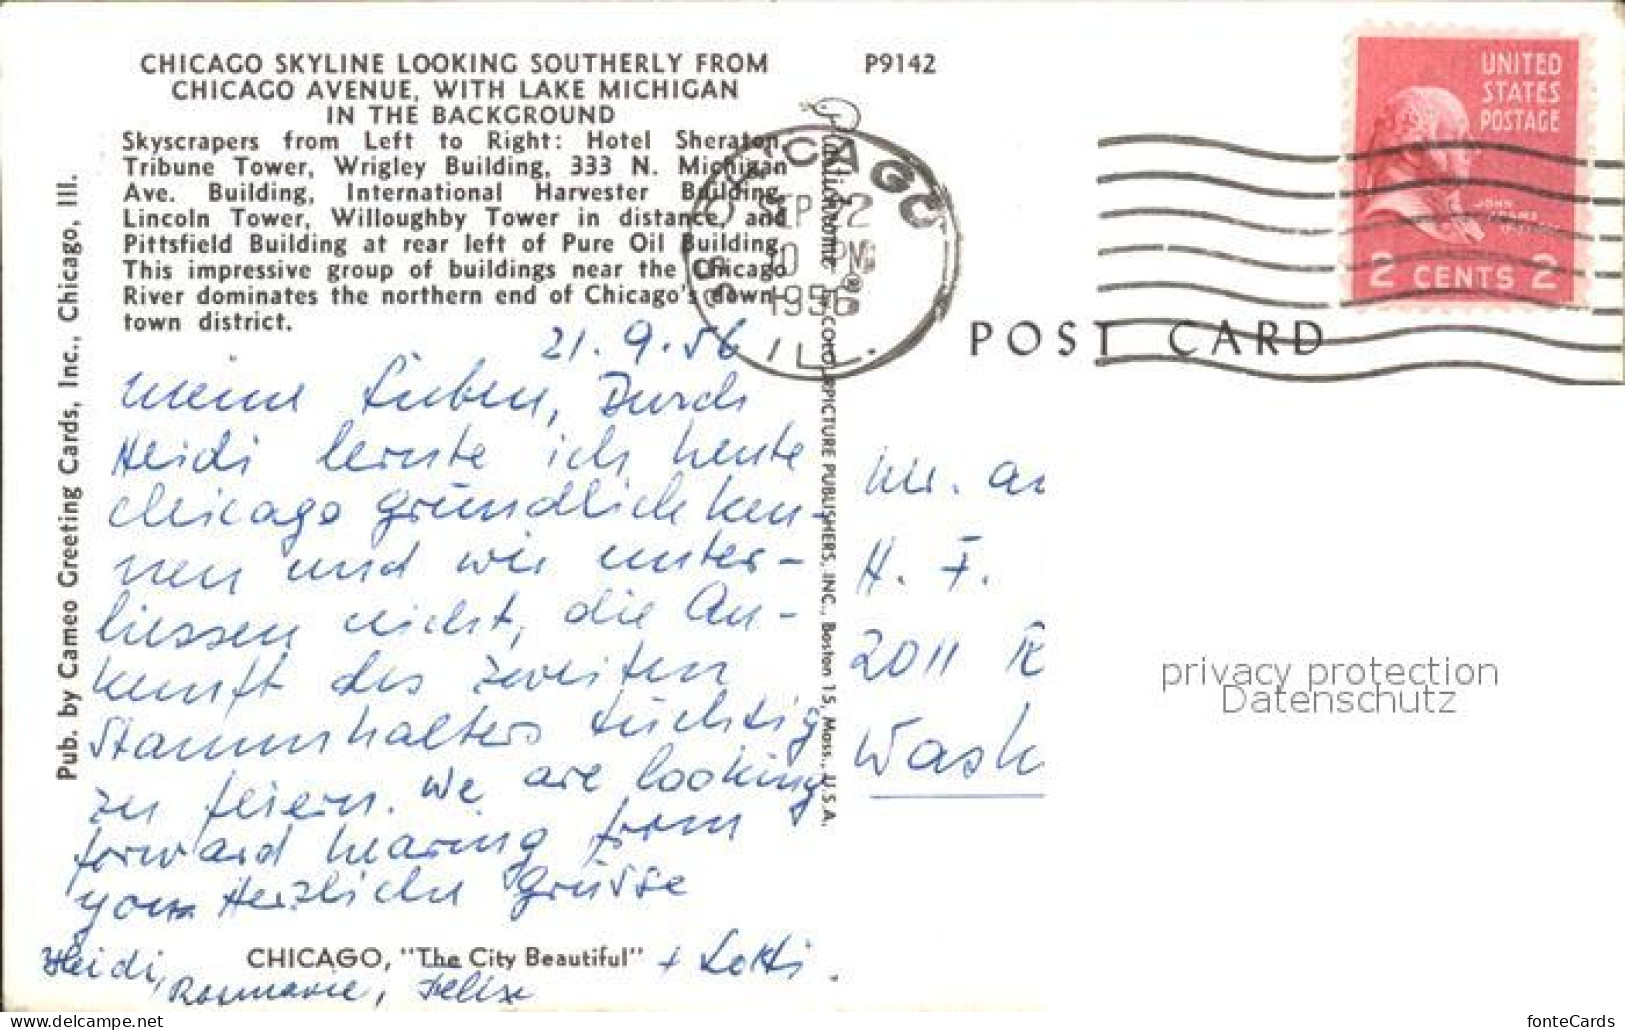 CHICAGO SKYLINE LOOKING SOUTHERLY FROM
CHICAGO AVENUE, WITH LAKE MICHIGAN
IN THE BACKGROUND
Skyscrapers from Left to Right: Hotel Sheraton,
Tribune Tower, Wrigley Building, 333 N. Michigan
Ave. Building, International Harvester Building,
Lincoln Tower, Willoughby Tower in distance, and
Pittsfield Building at rear left of Pure Oil Building.
This impressive group of buildings near the Chicago
River dominates the northern end of Chicago's down-
town district.
P9142
Pub. by Cameo Greeting Cards, Inc., Chicago, Ill.
21. 9. 56
Meine Lieben, Durch
Heidi lernte ich heute
Chicago gründlich ken-
nen und wir unter-
liessen nicht, die An-
kunft des zweiten
Stammhalters tüchtig
zu feiern. We are looking
forward hearing from
you Herzliche Grüsse
Heidi,
Rosmarie, Felix
+ Lotti.
CHICAGO, "The City Beautiful"
Plastichrome ® COLOURPICTURE PUBLISHERS, INC., Boston 15, Mass., U.S.A.
CHICAGO
SEP 22
10 PM
1956
ILL.
POST CARD
UNITED
STATES
POSTAGE
JOHN
ADAMS
2 CENTS 2
Mr. an
H. F.
2011 R
Wash
privacy protection
Datenschutz
https://www.delcampe.net/en_US
fonteCards